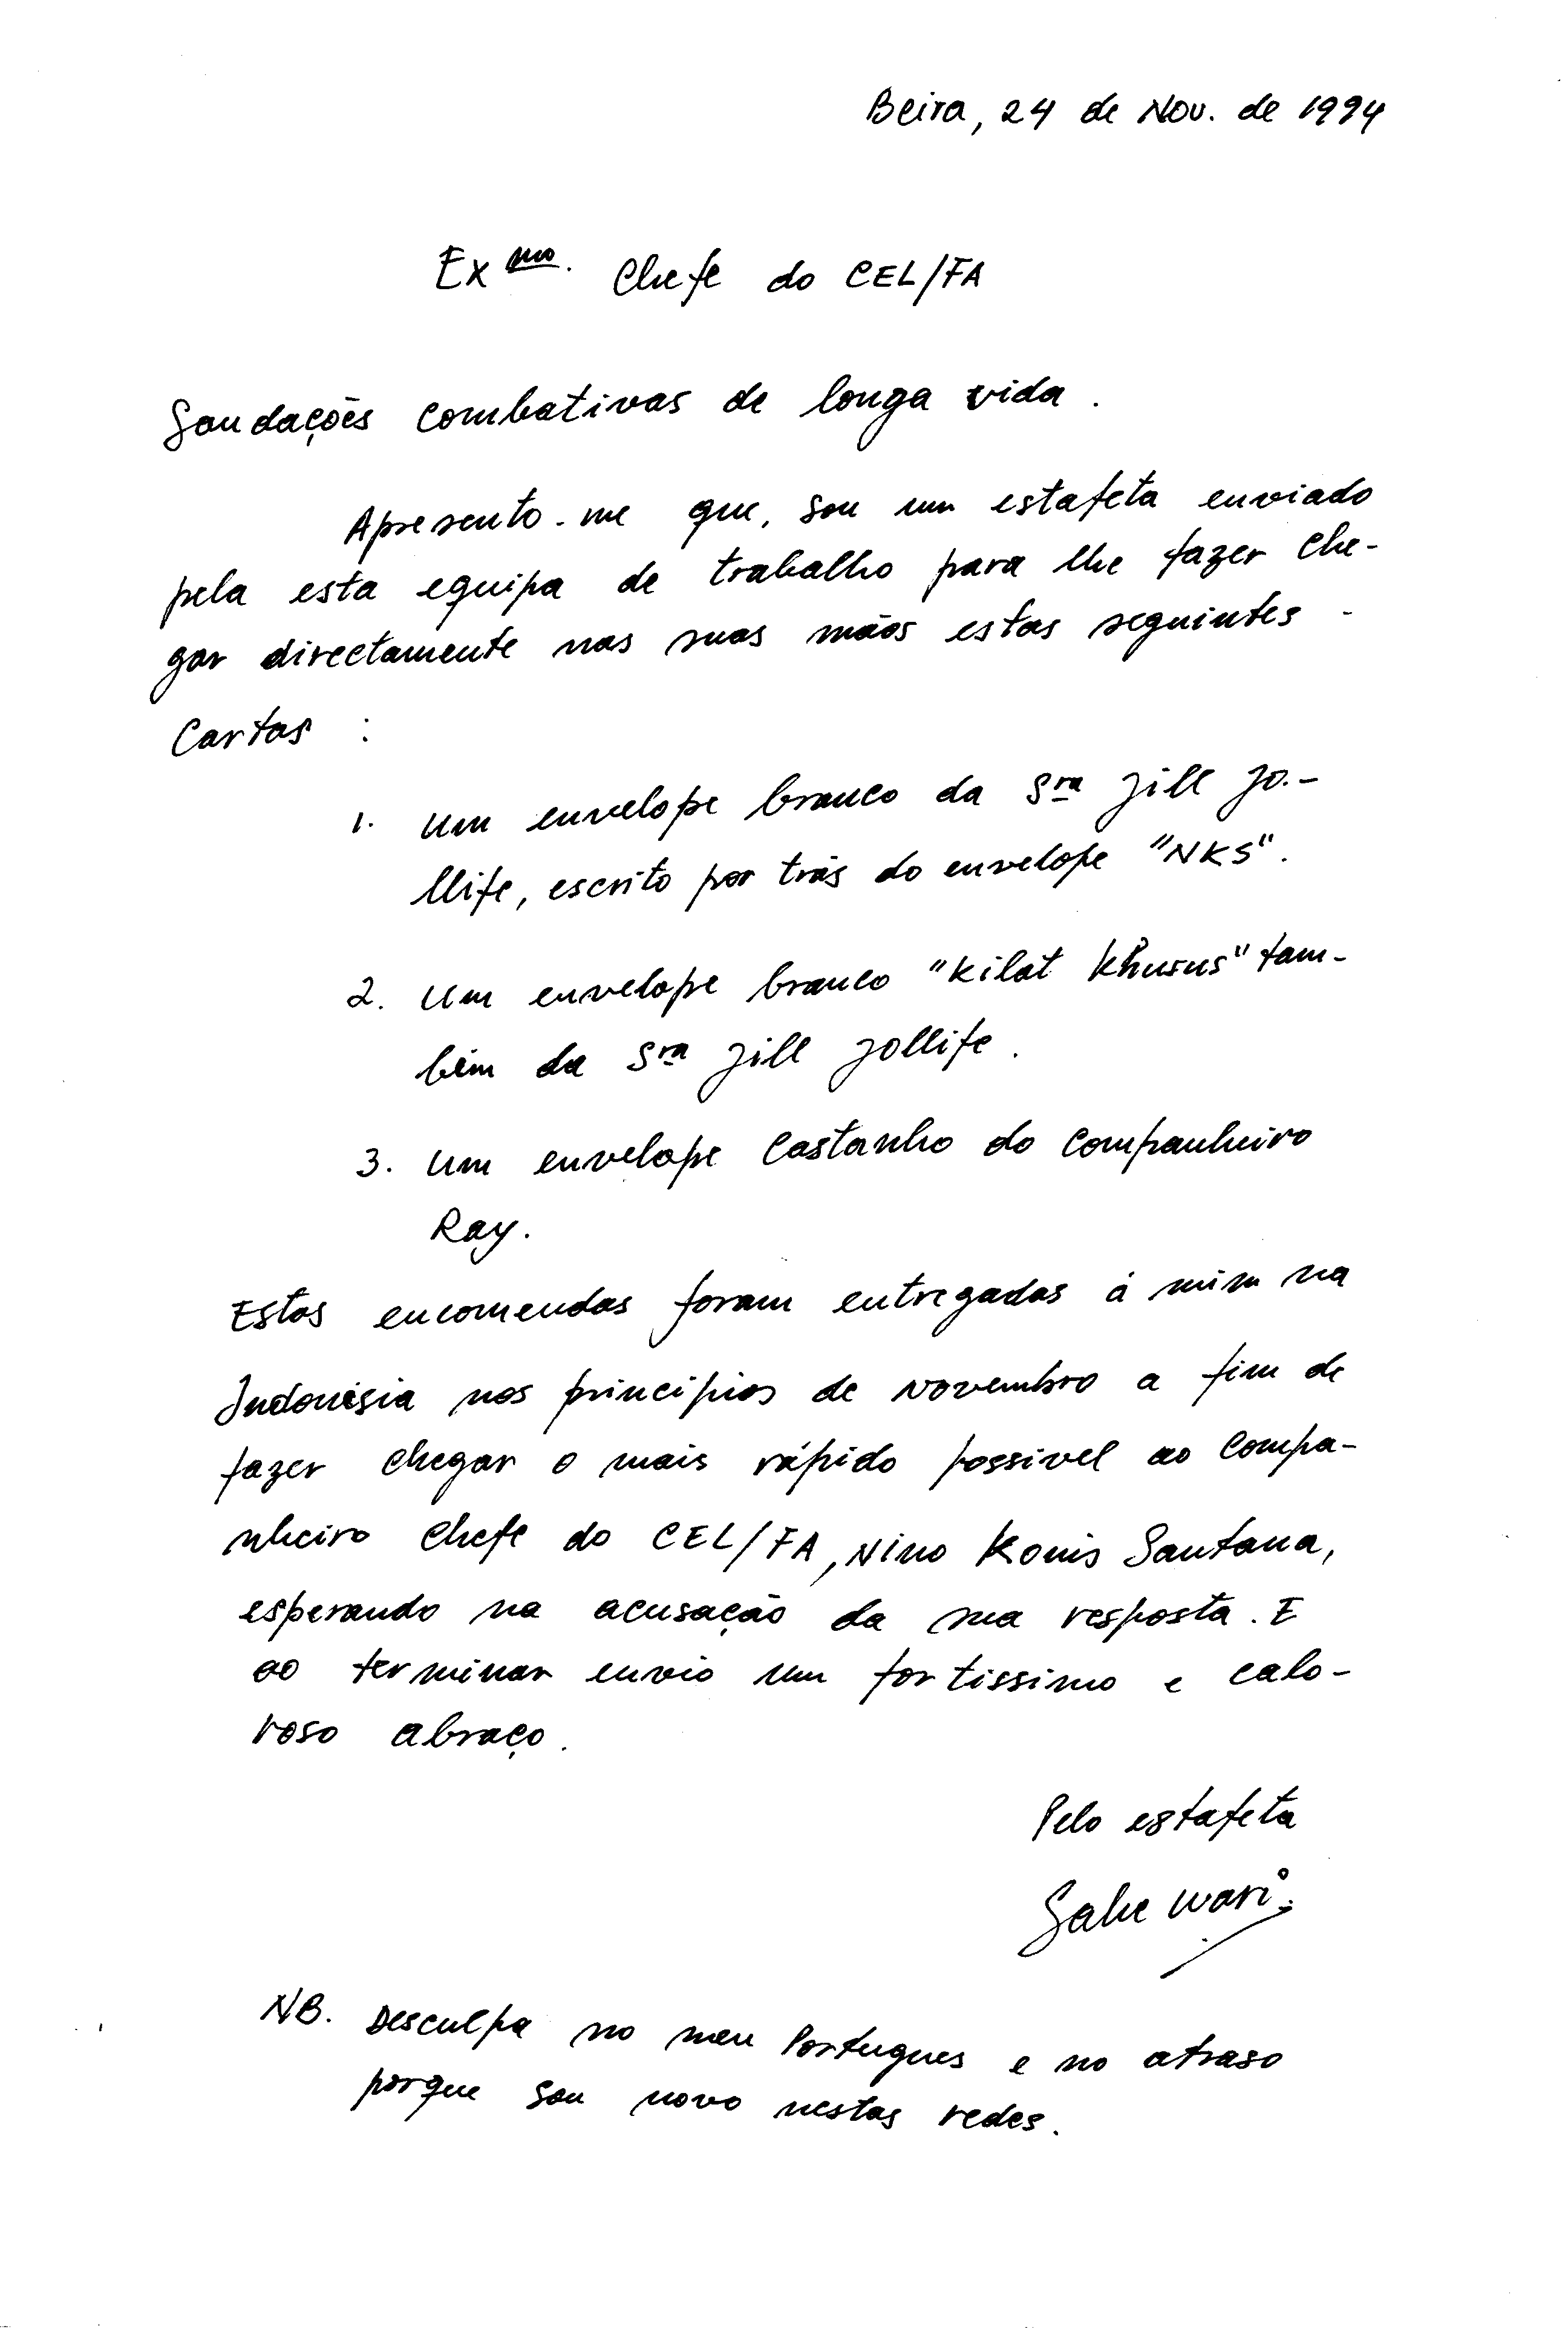 Beira, 24 de Nov. de 1994
Exmo. Chefe do CEL/FA
Saudações combativas de longa vida.
Apresento-me que, sou um estafeta enviado
pela esta equipa de trabalho para lhe fazer che-
gar directamente nas suas mãos estas seguintes -
Cartas :
1. um envelope branco da Sra Jill Jo.-
llife, escrito por trás do envelope "NKS".
2. um envelope branco "Kilat Khusus" tam-
bém da Sra Jill Jollife.
3. um envelope Castanho do Companheiro
Ray.
Estas encomendas foram entregadas á mim na
Indonésia nos princípios de Novembro a fim de
fazer chegar o mais rápido possivel ao Compa-
nheiro Chefe do CEL/FA, Nino Konis Santana,
esperando na acusação da sua resposta. E
ao terminar envio um fortissimo e calo-
roso abraço.
Pelo estafeta
Sahe wari.
NB. Desculpa no meu Portugues e no atraso
porque sou novo nestas redes.